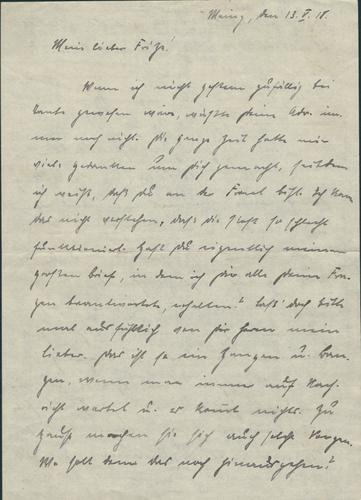 Mainz, den 13. V. 18.
Mein lieber Fritz!
Wenn ich nicht gestern zufällig bei
Tante gewesen wäre, wüßte deine Adr. im-
mer noch nicht. Die ganze Zeit hatte mir
viele Gedanken um dich gemacht, seitdem
ich weiß, daß du an der Front bist. Ich kann
das nicht verstehen, daß die Post so schlecht
funktioniert. Hast du eigentlich meinen
großen Brief, in dem ich dir alle deine Fra-
gen beantwortete, erhalten? Laß' doch bitte
mal ausführlich von dir hören mein
Lieber. Das ist so ein Hangen u. Ban-
gen, wenn man immer auf Nach-
richt wartet u. es kommt nichts. Zu
Hause machen sie sich auch solche Sorgen.
Wo soll denn das noch hinausgehen?